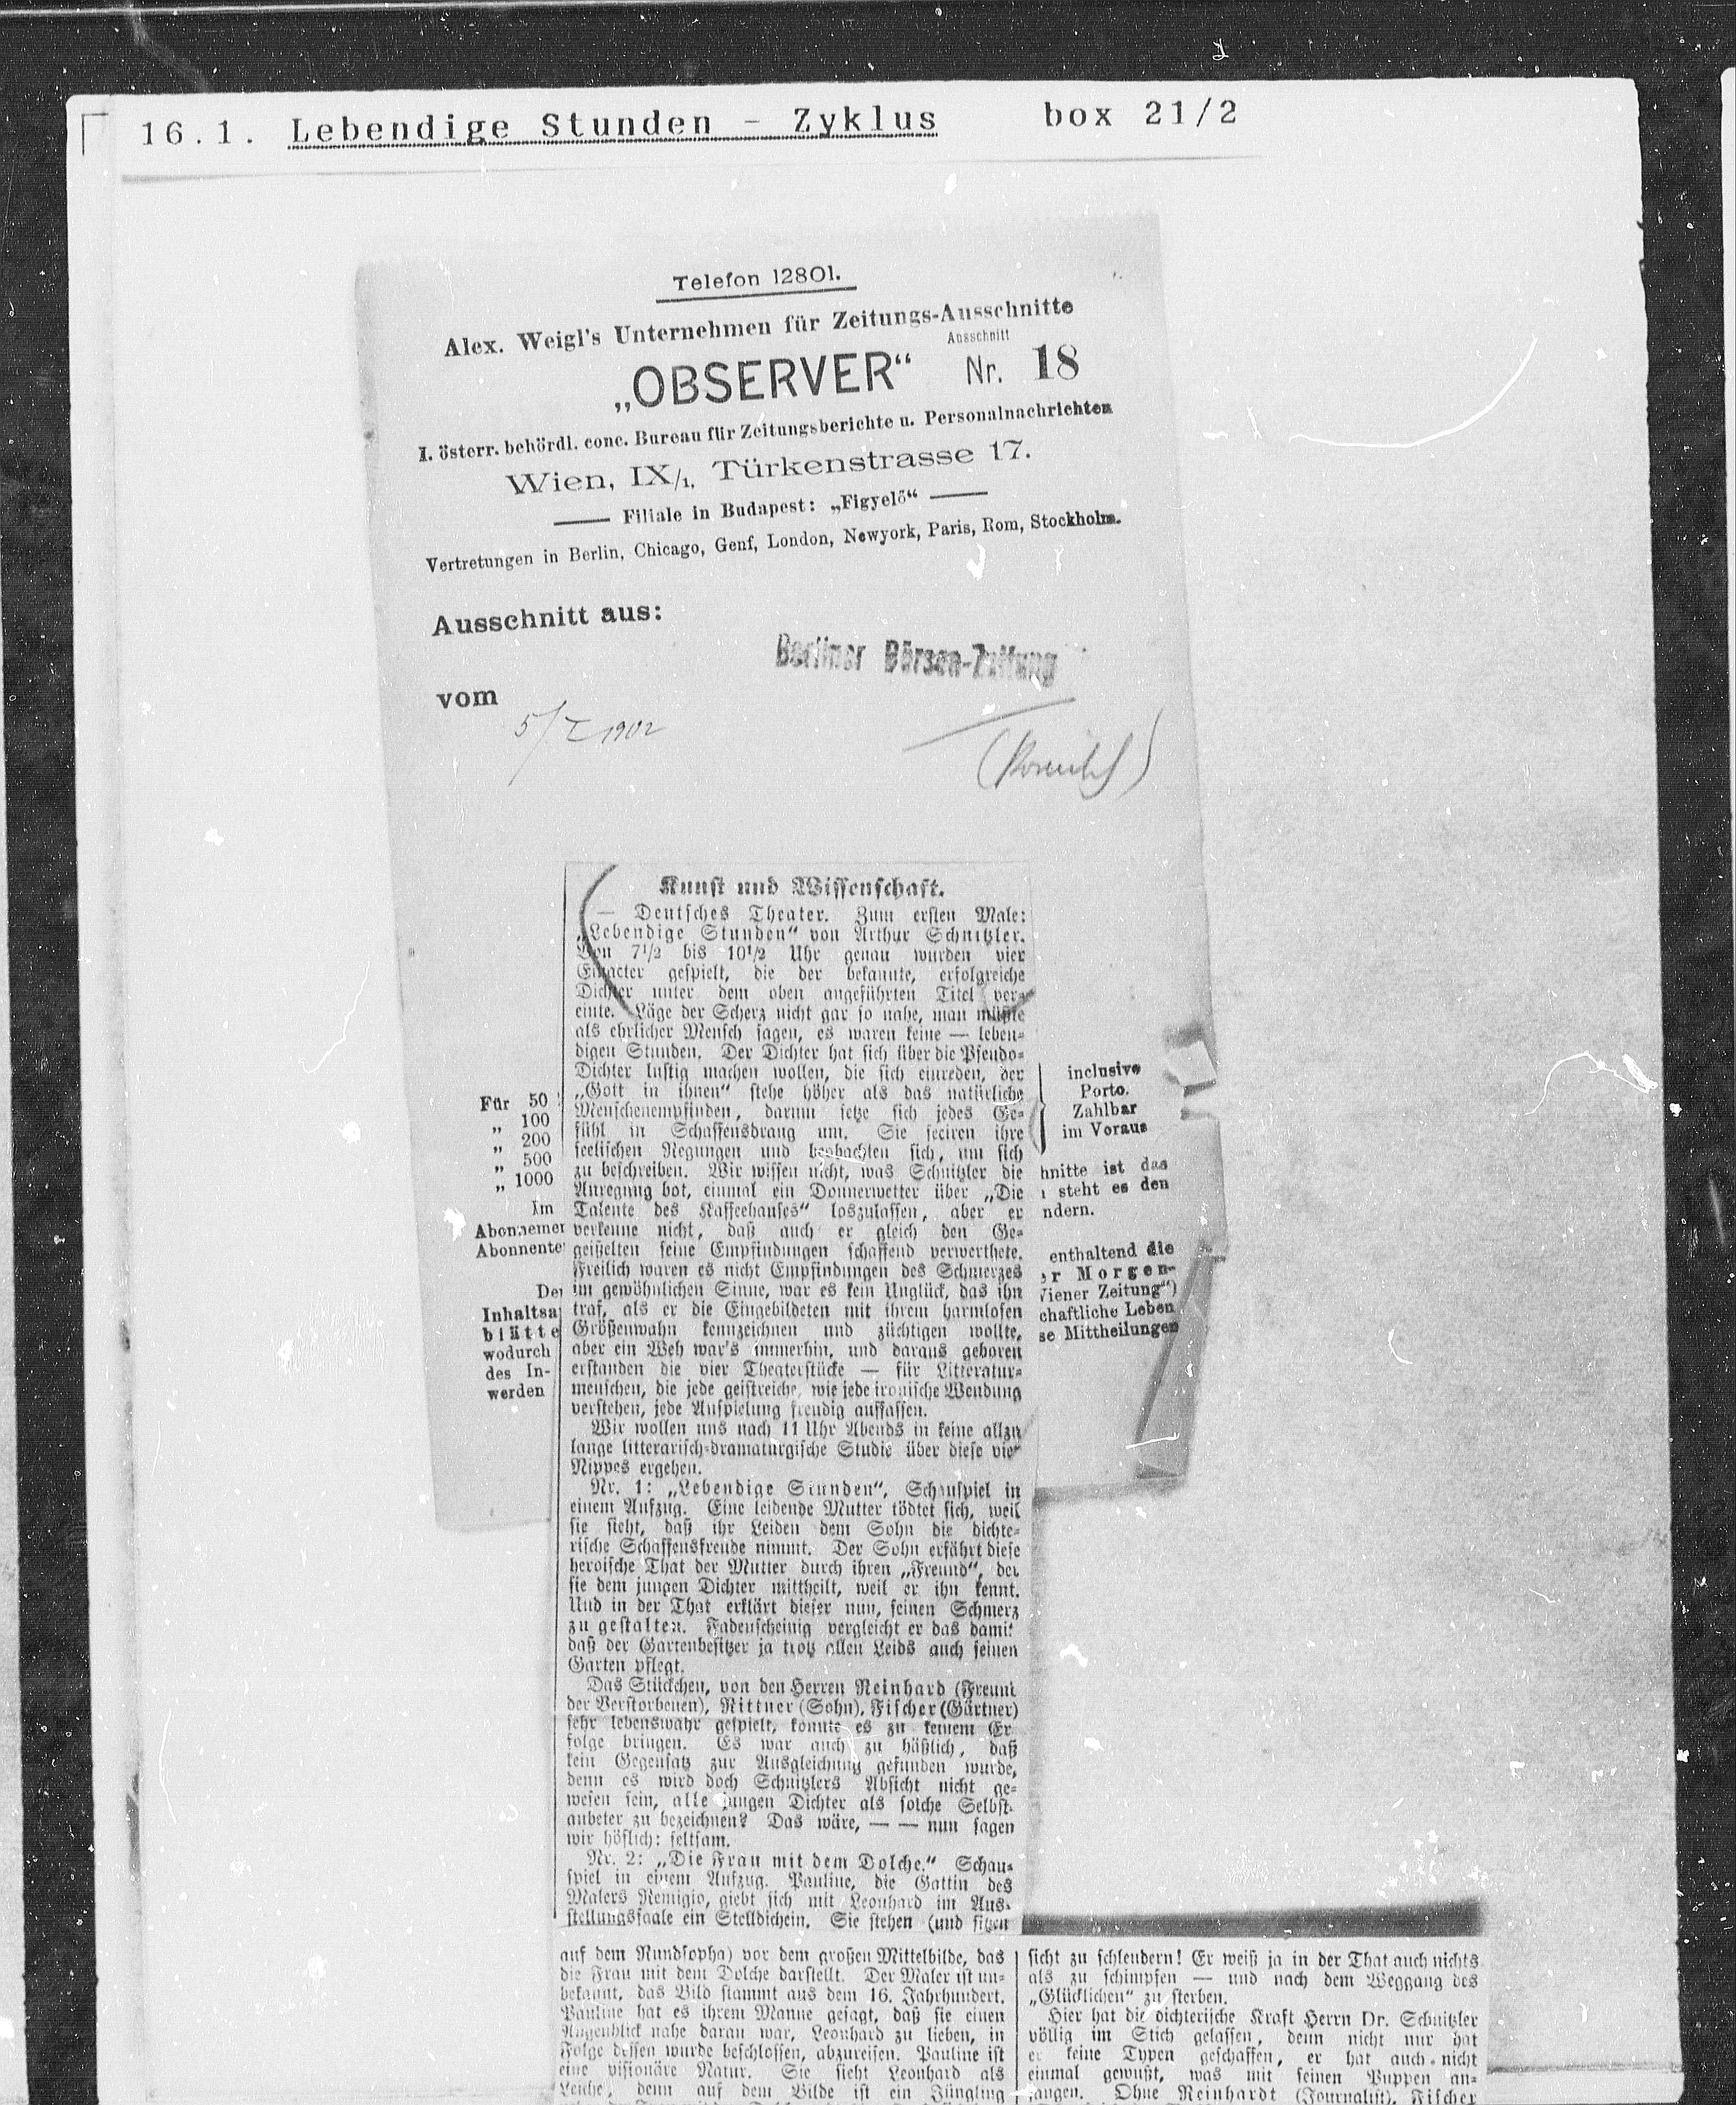 16.1. Lebendige Stunden - Zyklus box 21/2
Telefon 12801.
Alex. Weigl's Unternehmen für Zeitungs-Ausschnitte
Ausschnitt
„OBSERVER“ Nr. 18
I. österr. behördl. conc. Bureau für Zeitungsberichte u. Personalnachrichten
Wien, IX/1, Türkenstrasse 17.
Filiale in Budapest: „Figyelő“
Vertretungen in Berlin, Chicago, Genf, London, Newyork, Paris, Rom, Stockholm.
Ausschnitt aus:
Berliner Börsen-Zeitung
vom
5/I 1902
Kunst und Wissenschaft.
— Deutsches Theater. Zum ersten Male:
„Lebendige Stunden“ von Arthur Schnitzler.
Von 7 1/2 bis 10 1/2 Uhr genau wurden vier
Einacter gespielt, die der bekannte, erfolgreiche
Dichter unter dem oben angeführten Titel ver-
einte. Läge der Scherz nicht gar so nahe, man müßte
als ehrlicher Mensch sagen, es waren keine — leben-
digen Stunden. Der Dichter hat sich über die Pseudo-
Dichter lustig machen wollen, die sich einreden, der
„Gott in ihnen“ stehe höher als das natürliche
Menschenempfinden, darum setze sich jedes Ge-
fühl in Schaffensdrang um. Sie seciren ihre
seelischen Regungen und beobachten sich, um sich
zu beschreiben. Wir wissen nicht, was Schnitzler die
Anregung bot, einmal ein Donnerwetter über „Die
Talente des Kaffeehauses“ loszulassen, aber er
verkenne nicht, daß auch er gleich den Ge-
geißelten seine Empfindungen schaffend verwerthete.
Freilich waren es nicht Empfindungen des Schmerzes
im gewöhnlichen Sinne, war es kein Unglück, das ihn
traf, als er die Eingebildeten mit ihrem harmlosen
Größenwahn kennzeichnen und züchtigen wollte,
aber ein Weh war's immerhin, und daraus geboren
erstanden die vier Theaterstücke — für Litteratur-
menschen, die jede geistreiche, wie jede ironische Wendung
verstehen, jede Anspielung freudig auffassen.
Wir wollen uns nach 11 Uhr Abends in keine allzu
lange litterarisch-dramaturgische Studie über diese vier
Nippes ergehen.
Nr. 1: „Lebendige Stunden“, Schauspiel in
einem Aufzug. Eine leidende Mutter tödtet sich, weil
sie sieht, daß ihr Leiden dem Sohn die dichte-
rische Schaffensfreude nimmt. Der Sohn erfährt diese
heroische That der Mutter durch ihren „Freund“, der
sie dem jungen Dichter mittheilt, weil er ihn kennt.
Und in der That erklärt dieser nun, seinen Schmerz
zu gestalten. Fadenscheinig vergleicht er das damit
daß der Gartenbesitzer ja trotz allen Leids auch seinen
Garten pflegt.
Das Stückchen, von den Herren Reinhard (Freund
der Verstorbenen), Rittner (Sohn), Fischer (Gärtner)
sehr lebenswahr gespielt, konnte es zu keinem Er
folge bringen. Es war auch zu häßlich, daß
kein Gegensatz zur Ausgleichung gefunden wurde,
denn es wird doch Schnitzlers Absicht nicht ge-
wesen sein, alle jungen Dichter als solche Selbst-
anbeter zu bezeichnen? Das wäre, — — nun sagen
wir höflich: seltsam.
Nr. 2: „Die Frau mit dem Dolche.“ Schau-
spiel in einem Aufzug. Pauline, die Gattin des
Malers Remigio, giebt sich mit Leonhard im Aus-
stellungssaale ein Stelldichein. Sie stehen (und sitzen
Für 50
„ 100
„ 200
„ 500
„ 1000
Im
Abonnemen
Abonnente
Der
Inhaltsa
blätte
wodurch
des In-
werden
inclusive
Porto.
Zahlbar
im Voraus
hnitte ist das
steht es den
ndern.
enthaltend die
er Morgen-
Wiener Zeitung“)
chaftliche Leben
se Mittheilungen
auf dem Rundsopha) vor dem großen Mittelbilde, das
die Frau mit dem Dolche darstellt. Der Maler ist un-
bekannt, das Bild stammt aus dem 16. Jahrhundert.
Pauline hat es ihrem Manne gesagt, daß sie einen
Augenblick nahe daran war, Leonhard zu lieben, in
Folge dessen wurde beschlossen, abzureisen. Pauline ist
eine visionäre Natur. Sie sieht Leonhard als
Leiche, denn auf dem Bilde ist ein Jüngling
sicht zu schleudern! Er weiß ja in der That auch nichts
als zu schimpfen — und nach dem Weggang des
„Glücklichen“ zu sterben.
Hier hat die dichterische Kraft Herrn Dr. Schnitzler
völlig im Stich gelassen, denn nicht nur hat
er keine Typen geschaffen, er hat auch nicht
einmal gewußt, was mit seinen Puppen an-
fangen. Ohne Reinhardt (Journalist), Fischer